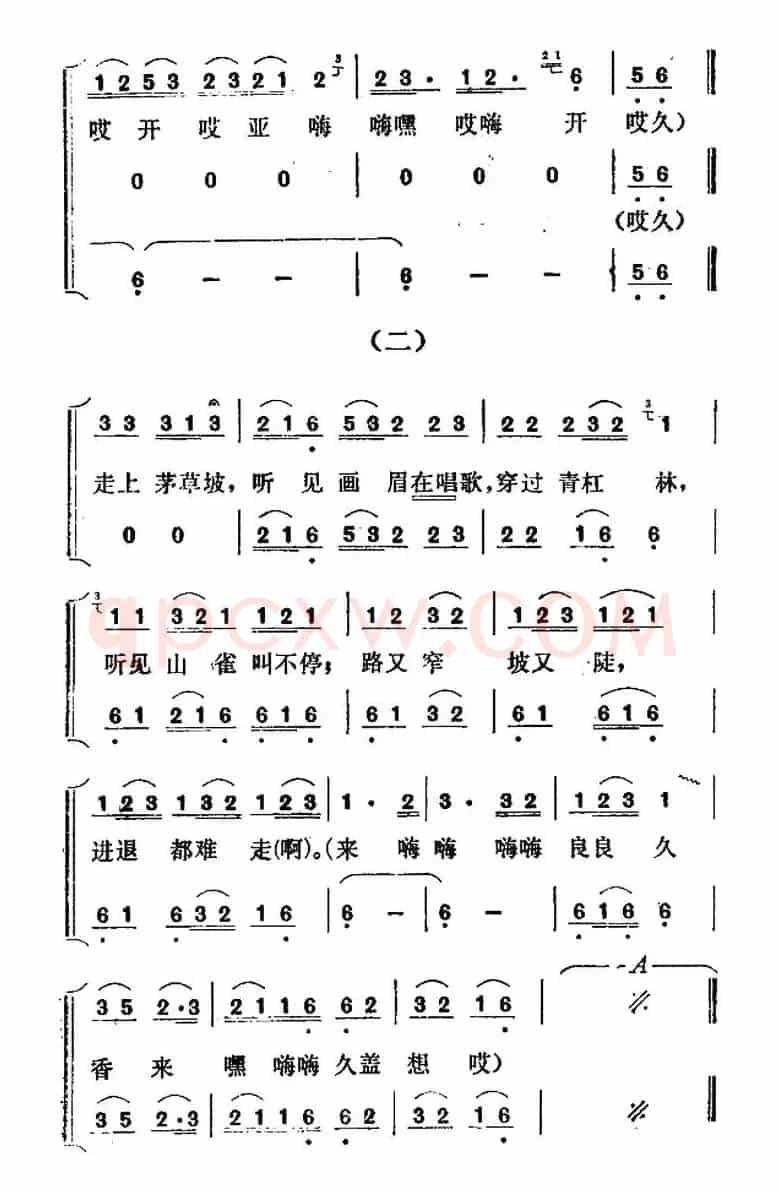 1253 2321 2 23· 12· 6 56
哎开 哎亚 嗨 嗨嘿 哎嗨 开 哎久)
0 0 0 0 0 0 56
(哎久)
6 – – 6 – – 56
(二)
33 313 216 532 23 22 232 1
走上 茅草坡,听 见画 眉在唱歌,穿过青杠 林,
0 0 216 532 23 22 16 6
11 321 121 12 32 123 121
听见山 雀 叫不停; 路又窄 坡又 陡,
61 216 616 61 32 61 616
123 132 123 1· 2 3· 32 123 1
进退 都难 走(啊)。(来 嗨 嗨 嗨嗨 良良 久
61 632 16 6 – 6 – 616 6
35 2·3 2116 62 32 16 A
香 来 嘿 嗨嗨 久盖 想 哎)
35 2·3 2116 62 32 16
qpcxw.COM